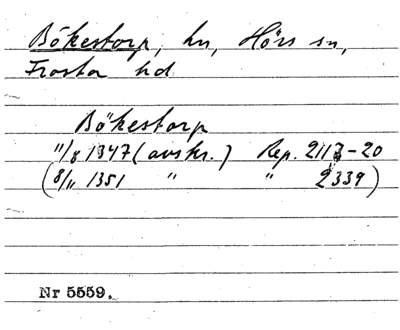 Bökestorp, hn, Hörs sn,
Frosta hd
Bökestorp
11/8 1347 (avskr.) Rep. 2113-20
(8/11 1351 " " 2339)
Nr 5559.